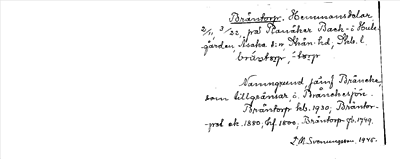 Bräntorp. Hemmansdelar
2/11, 3/22, på Planåker Back- i Hule-
gården Åsaka s:n Åkån. hd, Skb. l.
bräntorp, -torp
Namngrund, jämf Bräncke,
som tillgränsar, o. Bränchesjön.
Bräntorp kb. 1930, Bräntor-
pet ek. 1880, hf. 1800, Bräntorp gb. 1749.
D.M. Svenungsson, 1945.